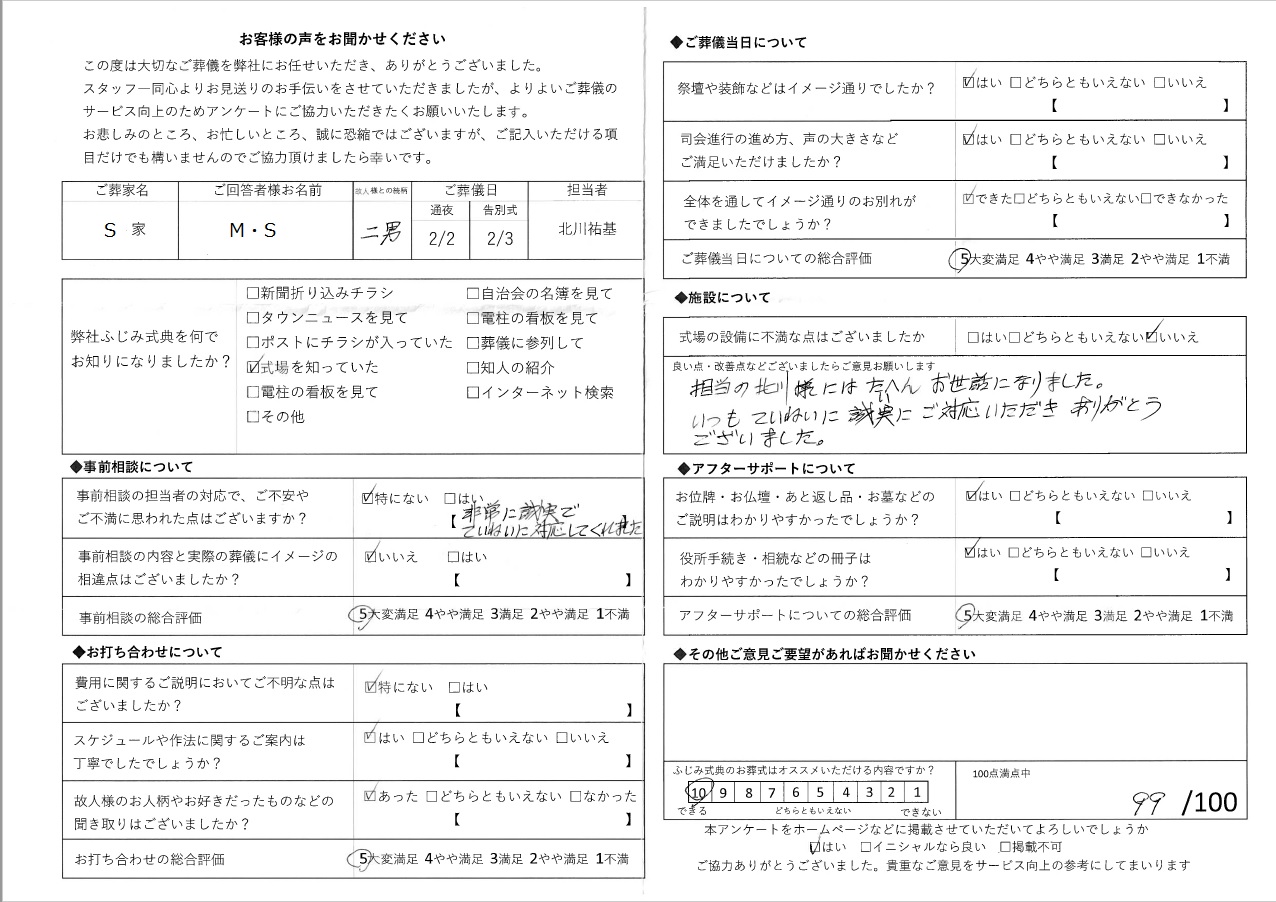 お客様の声をお聞かせください
この度は大切なご葬儀を弊社にお任せいただき、ありがとうございました。
スタッフ一同心よりお見送りのお手伝いをさせていただきましたが、よりよいご葬儀の
サービス向上のためアンケートにご協力いただきたくお願いいたします。
お悲しみのところ、お忙しいところ、誠に恐縮ではございますが、ご記入いただける項
目だけでも構いませんのでご協力頂けましたら幸いです。
ご葬家名 ご回答者様お名前 故人様との続柄 ご葬儀日 担当者
通夜 告別式
S 家 M・S 二男 2/2 2/3 北川祐基
弊社ふじみ式典を何で
お知りになりましたか？
□新聞折り込みチラシ □自治会の名簿を見て
□タウンニュースを見て □電柱の看板を見て
□ポストにチラシが入っていた □葬儀に参列して
☑式場を知っていた □知人の紹介
□電柱の看板を見て □インターネット検索
□その他
◆事前相談について
事前相談の担当者の対応で、ご不安や
ご不満に思われた点はございますか？
☑特にない □はい
【非常に誠実で
ていねいに対応してくれました】
事前相談の内容と実際の葬儀にイメージの
相違点はございましたか？
☑いいえ □はい
【 】
事前相談の総合評価 5大変満足 4やや満足 3満足 2やや満足 1不満
◆お打ち合わせについて
費用に関するご説明においてご不明な点は
ございましたか？
☑特にない □はい
【 】
スケジュールや作法に関するご案内は
丁寧でしたでしょうか？
☑はい □どちらともいえない □いいえ
【 】
故人様のお人柄やお好きだったものなどの
聞き取りはございましたか？
☑あった □どちらともいえない □なかった
【 】
お打ち合わせの総合評価 5大変満足 4やや満足 3満足 2やや満足 1不満
◆ご葬儀当日について
祭壇や装飾などはイメージ通りでしたか？
☑はい □どちらともいえない □いいえ
【 】
司会進行の進め方、声の大きさなど
ご満足いただけましたか？
☑はい □どちらともいえない □いいえ
【 】
全体を通してイメージ通りのお別れが
できましたでしょうか？
☑できた□どちらともいえない□できなかった
【 】
ご葬儀当日についての総合評価 5大変満足 4やや満足 3満足 2やや満足 1不満
◆施設について
式場の設備に不満な点はございましたか □はい□どちらともいえない☑いいえ
良い点・改善点などございましたらご意見お願いします
担当の北川様には たいへん お世話になりました。
いつも ていねいに 誠実に ご対応いただき ありがとう
ございました。
◆アフターサポートについて
お位牌・お仏壇・あと返し品・お墓などの
ご説明はわかりやすかったでしょうか？
☑はい □どちらともいえない □いいえ
【 】
役所手続き・相続などの冊子は
わかりやすかったでしょうか？
☑はい □どちらともいえない □いいえ
【 】
アフターサポートについての総合評価 5大変満足 4やや満足 3満足 2やや満足 1不満
◆その他ご意見ご要望があればお聞かせください
ふじみ式典のお葬式はオススメいただける内容ですか？
10 9 8 7 6 5 4 3 2 1
できる どちらともいえない できない
100点満点中
99 /100
本アンケートをホームページなどに掲載させていただいてよろしいでしょうか
☑はい □イニシャルなら良い □掲載不可
ご協力ありがとうございました。貴重なご意見をサービス向上の参考にしてまいります